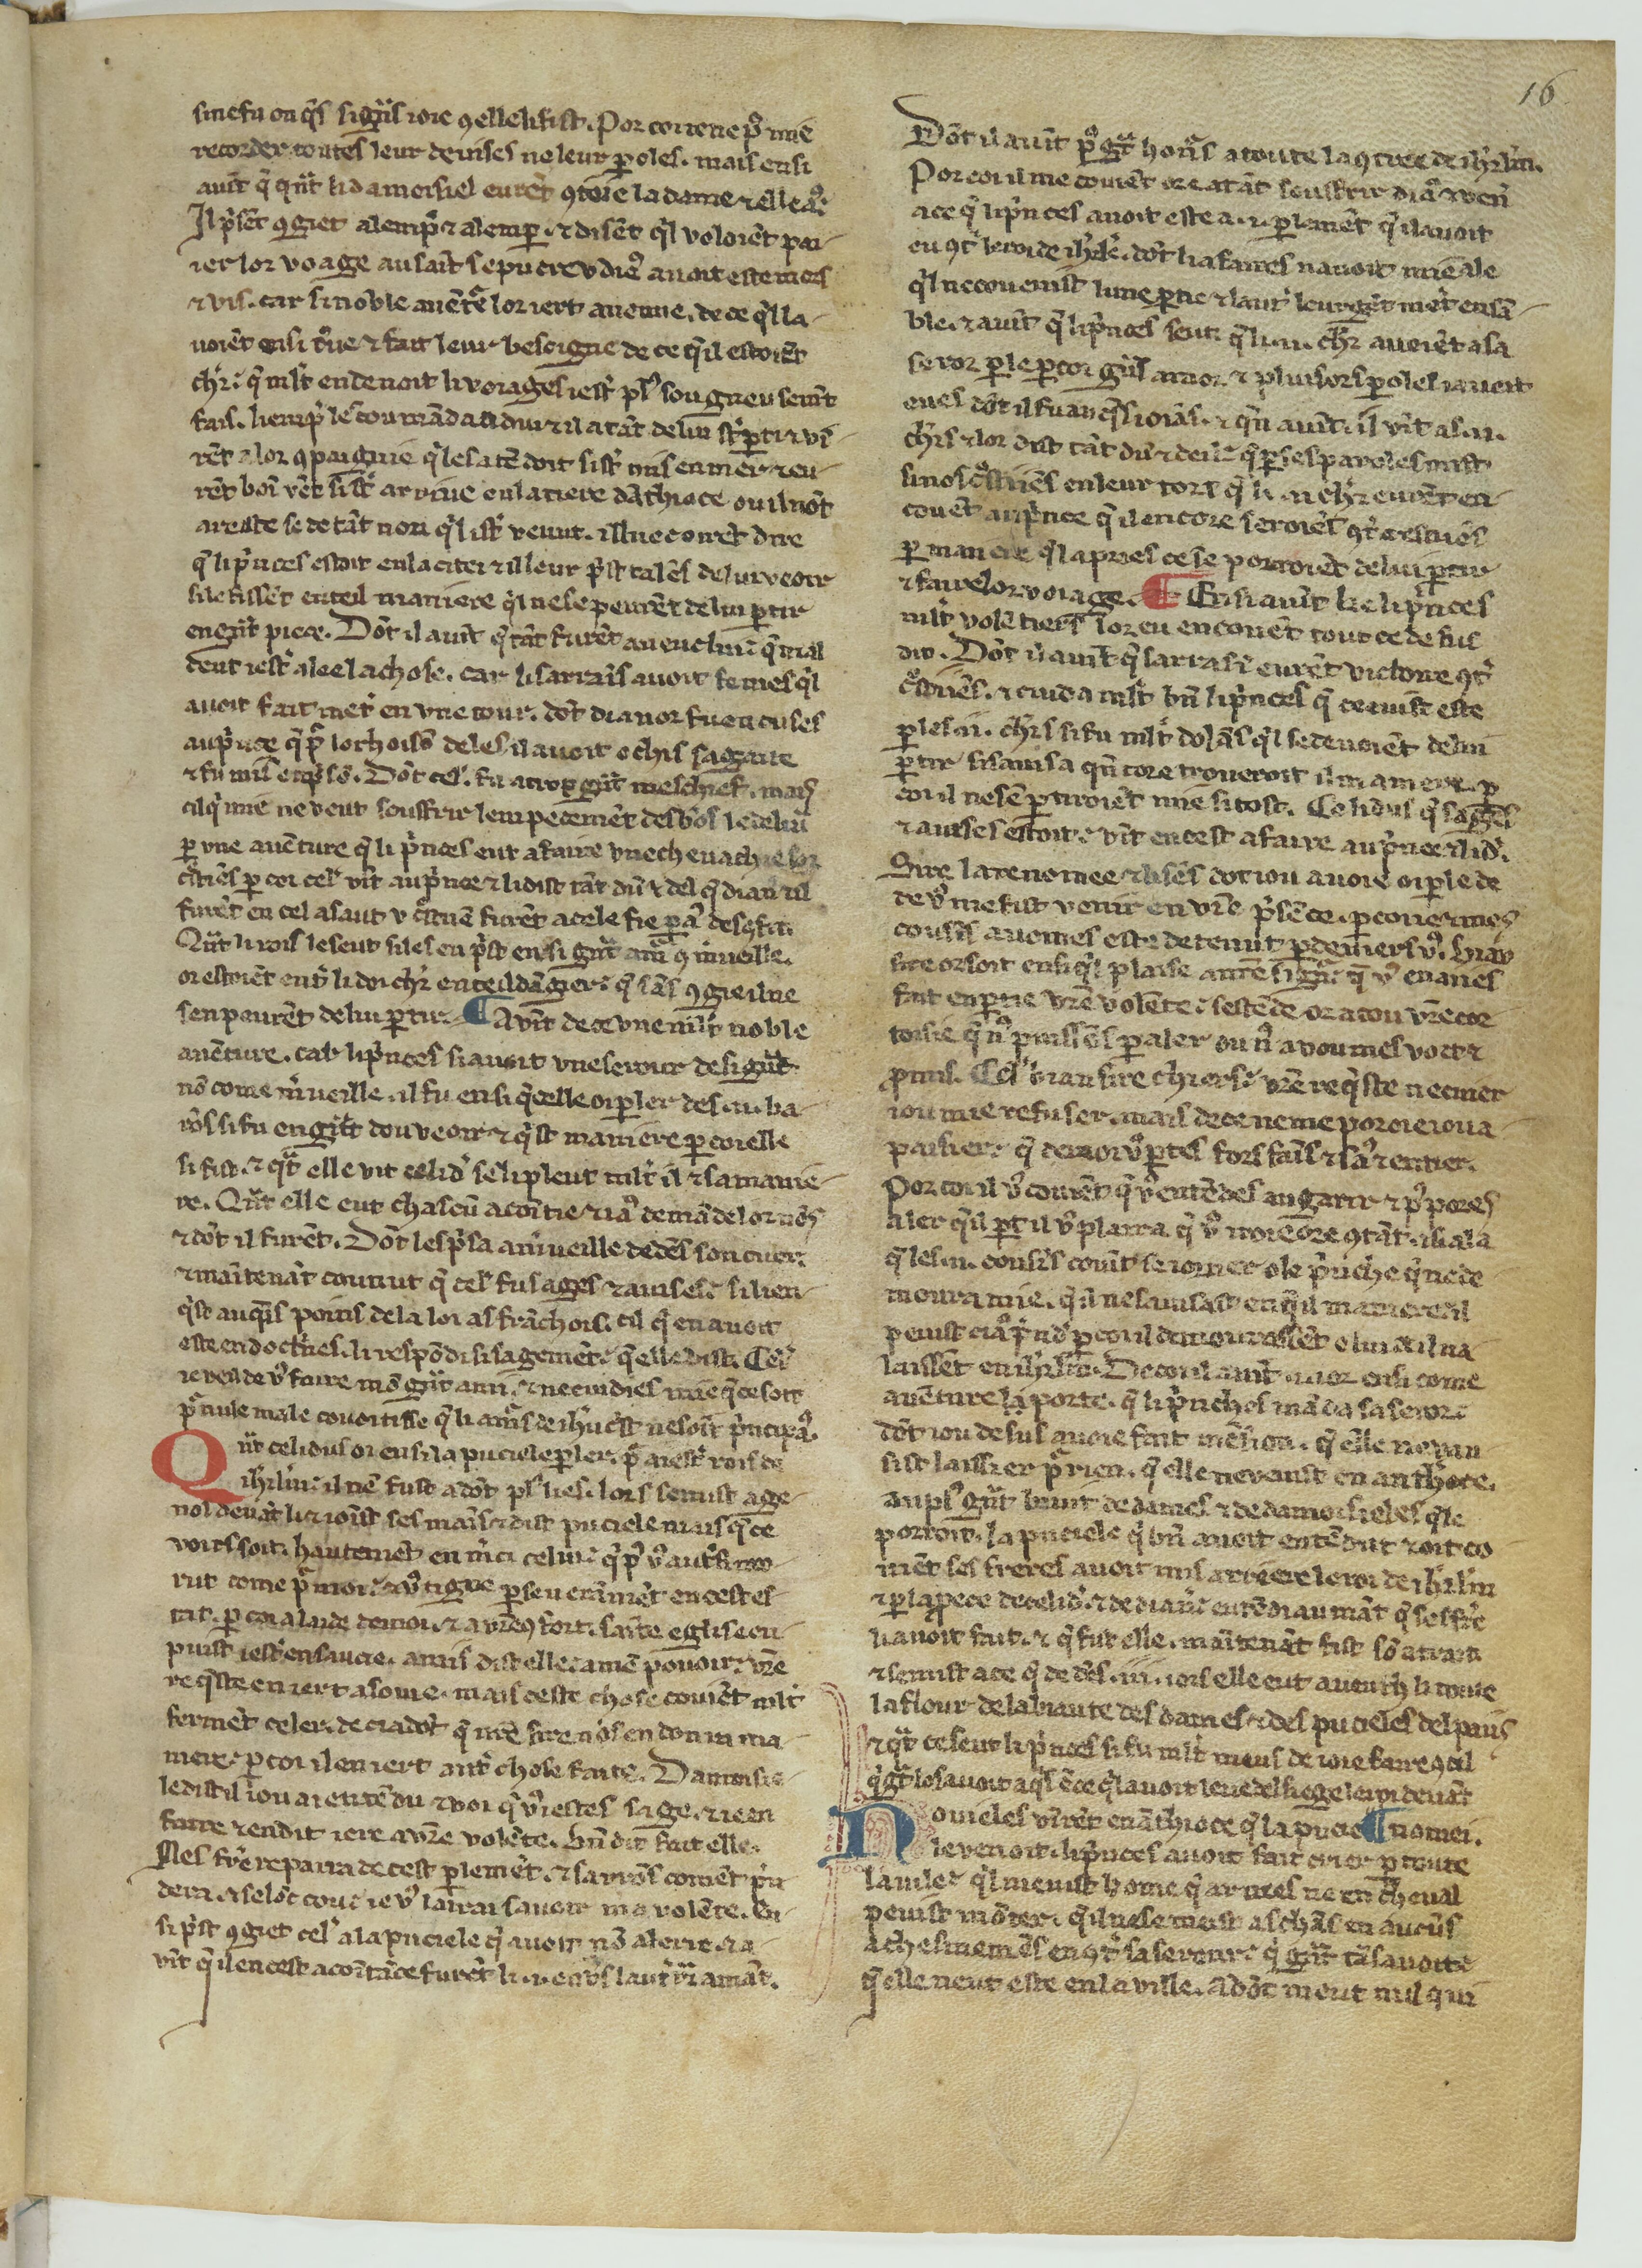 16
sine fu on q̃s si gñs ioie ꝯ elle li fist. Por coi ne ie pͥ mie
recorder toutes leur deuises ne leur ꝑoles. mais ensi
auīt q̃ qñt li damoisiel eurēt ꝯtoie la dame ⁊ elle aꝰ
Il pͥsēt ꝯgiet alempͥ ⁊ alempꝑ. ⁊ disēt q̃l voloiēt pai
ier lor voage au saīt sepucre v dieꝰ auoit este mors
⁊ vis. car si noble auētͥe lor iert auenue. de ce q̃l la
uoiēt ensi
chr̄. q̃ ml̃t en deuoit li voiages iestͥ plꝰ songneusemēt
fais. lempͥ les coumāda a diu ⁊ il atāt de lui se ꝑti ⁊ vi
rēt a lor ꝯpaignie q̃ les atēdoit
rēt boī vēt si st̄ ariue en la tiere dāthioce ou il nōt
areste se de tāt non q̃l
q̃ li pͥnces estoit en la citei ⁊ il leur pͥst talēs de lui veoir
si le fissēt en teil maniere q̃l ne se peurēt de lui ꝑtir
en gñt piece. Dōt il auīt q̃ tāt furēt auenc lui q̃ mal
deut iestͥ alee la chose. car li sarrazīs auoit femes q̃l
auoit fait metͥ en vne tour. dōt dianor fu encuses
au pͥnce q̃ pͥ lochoisō de les il auoit ochis sa gaite
⁊ fu mis en pͥsō. Dōt celꝰ fu a trop gñt meschief. mais
cil q̃ mie ne veut souffrir lempecemēt des bōs le deliuͥ
ꝑ vne auēture q̃ li pͥnces eut a faire vne cheuachie sor
cͥstiēs ꝑ coi celꝰ vīt au pͥnce ⁊ li dist tāt dū ⁊ del q̃ dian ⁊ il
furēt en cel asaut v cͥstiiē furēt a cele fie
Qñt li rois le seut si les en pͥst en si gñt amͥ q̃ mͥueille.
or estoiēt ensi li doi chr̄ en teil dāgier. q̃ sās ꝯgie il ne
sen peurēt de lui ꝑtir. ¶ Auīt de ce vne ml̃t noble
auēture. car li pͥnces si auoit vne serour de si gñt
nō come mͥueille. il fu ensi q̃ celle oi ꝑler des .ii. ba
rōs si fu en gñt dou veoir ⁊ q̃st maniere ꝑ coi elle
si fist. ⁊ qñt elle vit celidꝰ se li pleut ml̃t il ⁊ sa manie
re. Qñt elle eut chascū acoītie ⁊ aꝰ demāde lor nōs
⁊ dōt il furēt. Dōt les pͥsa a mͥueille dedēs son cuer.
⁊ maītenāt counut q̃ celꝰ fu sages ⁊ auises. si li en
q̃st auq̃s poins de la loi as frāchois. cil q̃ en auoit
este endoctͥnes. li respōdi si sagemēt. q̃ elle dist. Celꝰ
ie veil de vꝰ faire mō gñt ami. ⁊ ne cuidies mie q̃ ce soit
pͥ nule male couoitisse q̃ li amͥs de ihū cͥst
Qñt celidus oi ensi la puciele ꝑler. pͥ aiestͥ rois de
ihrl̄m. il nē fust adōt plꝰ lies. lors se mist age
nol deuāt li ⁊ ioīst ses mais ⁊ dist puciele mais q̃ ce
voirs soit. hautemēt en mͥci celui. q̃ pͥ vꝰ autͥsi mo
rut come pͥ moi. ⁊ vꝰ tigne ꝑseuerāmēt en cest es
tat. ꝑ coi alaide de moi. ⁊ a vr̄e ꝯfort. saīte eglise en
puist iestͥ ensaucie. amis dist elle. a mē pouoir. vr̄e
req̃ste en iert asouie. mais ceste chose couiēt ml̃t
fermēt celer. de ci adōt q̃ mes sire nōs en doinra ma
niere. ꝑ coi il en iert autͥ chose faite. Damoisie
le dist il iou ai entēdu ⁊ voi q̃ vꝰ iestes sage. ⁊ ie en
faire ⁊ en dit iere a vr̄e volēte. bn̄ dit fait elle.
Mes fr̄e repaira de cest ꝑlemēt. ⁊ sarōs comēt pͥn
dera. ⁊ selōc couc ie vꝰ lairai sauoir ma volēte. En
si pͥst ꝯgiet celꝰ a la puciele q̃ auoit nō alerie. ⁊ a
vīt q̃ il en cest acoītāce furēt li .i. enūs lautͥ vrai amāt.
Dōt il auīt pͦ gñt honꝰs a toute la ꝯtree de ihrl̄m.
Por coi il me couiēt ore atāt souffrir diaꝰ ⁊ venͥ
a ce q̃ li pͥnces auoit este a .i. ꝑlemēt q̃ il auoit
eu ꝯtͥ le roi de ihrl̄. dōt li afaires nauoit mie ale
q̃l ne couenist lune ꝑtie ⁊ lautͥ leur gēt metͥ ensā
ble. ⁊ auīt q̃ li pͥnces seut q̃ li .ii. chr̄ auoiēt a sa
seror ꝑle ꝑ coi gñs amor ⁊ pluisors ꝑoles i auoit
eues dōt il fu auq̃s ioiās. ⁊ qñ auīt. il vīt as .ii.
chr̄s ⁊ lor dist tāt dū ⁊ del. q̃ ꝑ ses paroles mist
si nos cͥstiiēs en leur tort q̃ li .ii. chr̄ eurēt en
couēt au pͥnce q̃ il encore seroiēt ꝯtͥ cͥstiiēs
ꝑ maniere q̃l apries ce se porroiēt de lui ꝑtir
⁊ faire lor voiage. ¶ Ensi auīt ke li pͥnces
ml̃t volētiers lor eu encouēt tout ce de sus
dit. Dōt il auīt q̃ sarrasī eurēt victorie ꝯtͥ
cͥstiiēs. ⁊ cuida ml̃t bn̄ li pͥnces q̃ ce euist este
ꝑ les .ii. chr̄s si fu ml̃t dolās q̃l se deuoiēt de lui
ꝑtir si sauisa qñcore troueroit il maniere. ꝑ
coi il ne sē ꝑtiroiēt mie si tost. Celidus q̃ sages
⁊ auises estoit. vīt en cest afaire au pͥnce ⁊ li dͥ.
Sire la renomee ⁊ li sēs dōt iou auoie oi ꝑle de
de vꝰ me fist venir en vr̄e pͥsēce. ꝑ coi ie ⁊ mes
cousīs auomes este detenut ꝑ deuiers vꝰ. biaꝰ
sire or soit ensi q̃l plaise a
fait en ꝑtie vr̄e volēte. sestēde or a tou vr̄e cor
toisie q̃ nꝰ puissōs ꝑ aler ou nꝰ auoumes voet ⁊
ꝓmis. Celꝰ biau sire chiers. vr̄e req̃ste ne cuier
iou mie refuser. mais de ce ne me poroie ioua
paisier. q̃ de moi vꝰ ꝑtes fors sais ⁊ saꝰ ⁊ entier.
Por coi il vꝰ couiēt q̃ vꝰ entēdes au garir ⁊ pͥ pores
aler q̃l ꝑt il vꝰ plaira q̃ vꝰ
q̃ les .ii. cousīs couīt seiorner o le pͥnche q̃ ne de
moura mie. q̃ il ne sauisast en q̃il maniere il
peuist
laissēt en ihrl̄m. De coi il auīt .i. ior ensi come
auēture la porte. q̃ li pͥnches māda sa seror.
dōt iou desus auoie fait mēsion. q̃ elle ne vau
sist laissier pͥ rien. q̃ elle ne venist en anthoce.
au plꝰ gñt bruit de dames ⁊ de damoisieles q̃le
porroit. la puciele q̃ bn̄ auoit entēdut ⁊ oit co
mēt ses freres auoit mis arriere le roi de ihrl̄m
⁊ ꝑ la ꝓece de celidͥ ⁊ de dianͥ entēdi au māt q̃ ses fr̄e
li auoit fait. ⁊ q̃ fist elle. maītenāt fist sō atirer
⁊ se mist a ce q̃ de dēs .iii. iors elle eut auenc li toute
la flour de la biaute des dames ⁊ des pucieles del pais
⁊ qñt ce seut li pͥnces si fu ml̃t meus de ioie faire ꝯ cil
q̃ gñt los auoit aq̃s ē ce q̃l auoit leue del siege le roi deuāt
Nouieles vīrēt en āthioce q̃ la pucie ¶ nomei.
le venoit. li pͥnces auoit fait crier ꝑ toute
la vile. q̃l ni euist home q̃ armes ne en cheual
peuist mōter. q̃ il ne se meist as chās en aucūs
achesmemēs en ꝯtͥ sa serour. q̃ gñt tās auoit
q̃ elle neut este en la ville. adōt meut nul qui